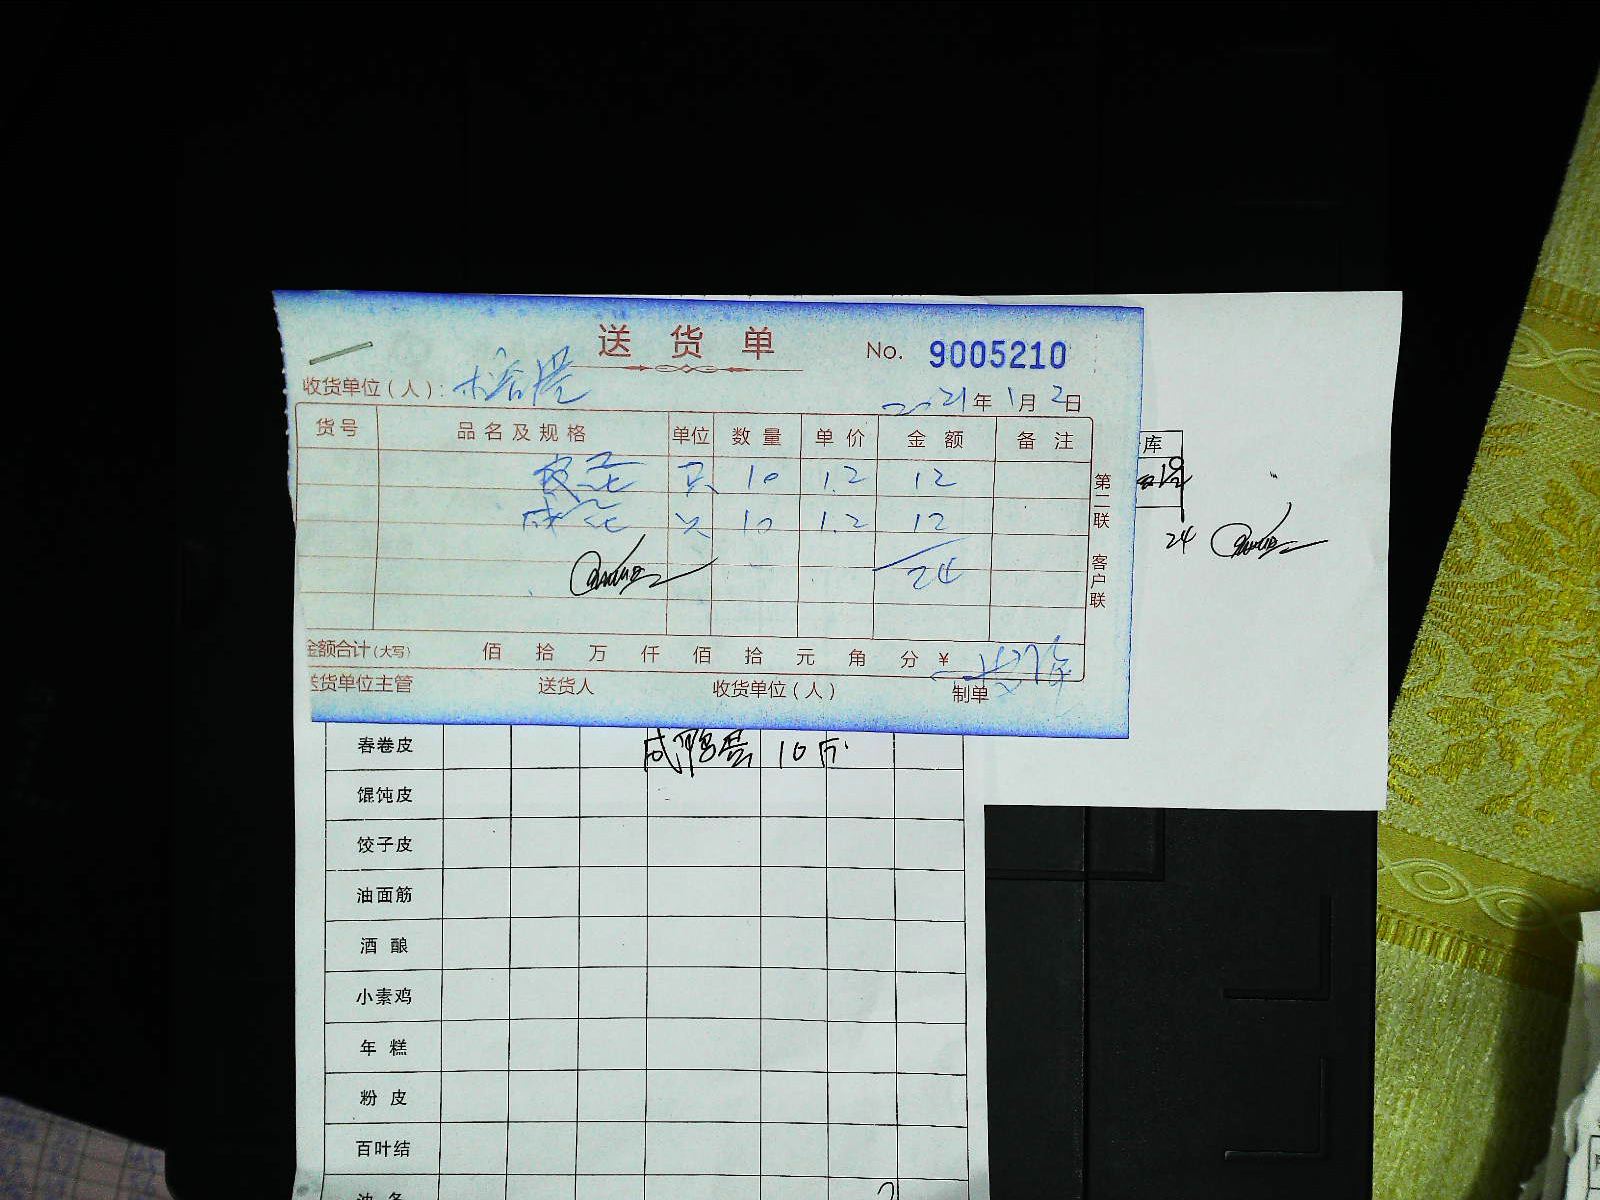 送货单
No. 9005210
收货单位(人):
2021年1月2日
货号 品名及规格 单位 数量 单价 金额 备注
皮蛋 只 10 1.2 12
咸蛋 只 10 1.2 12
24
金额合计(大写) 佰 拾 万 仟 佰 拾 元 角 分 ¥
送货单位主管 送货人 收货单位(人) 制单
第二联 客户联
库
24
春卷皮 咸鸭蛋 10
馄饨皮
饺子皮
油面筋
酒酿
小素鸡
年糕
粉皮
百叶结